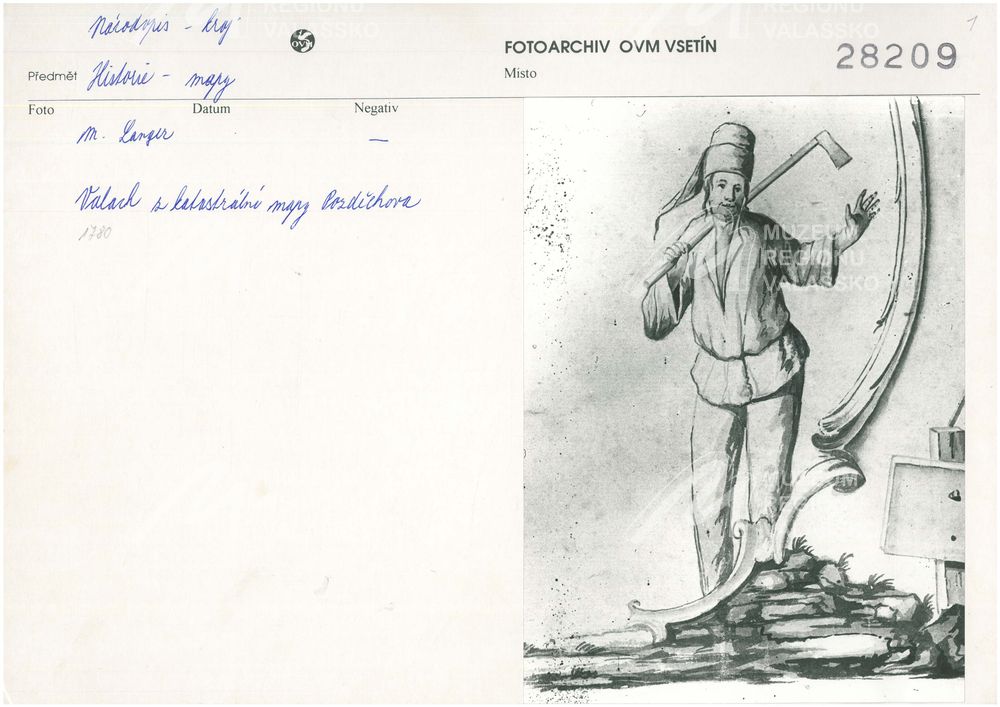 Národopis - kroj
OVM
FOTOARCHIV OVM VSETÍN
1
28209
Předmět Historie - mapy
Místo
Foto Datum Negativ
M. Langer —
Valach z katastrální mapy Pozděchova
1780
MUZEUM
REGIONU
VALAŠSKO